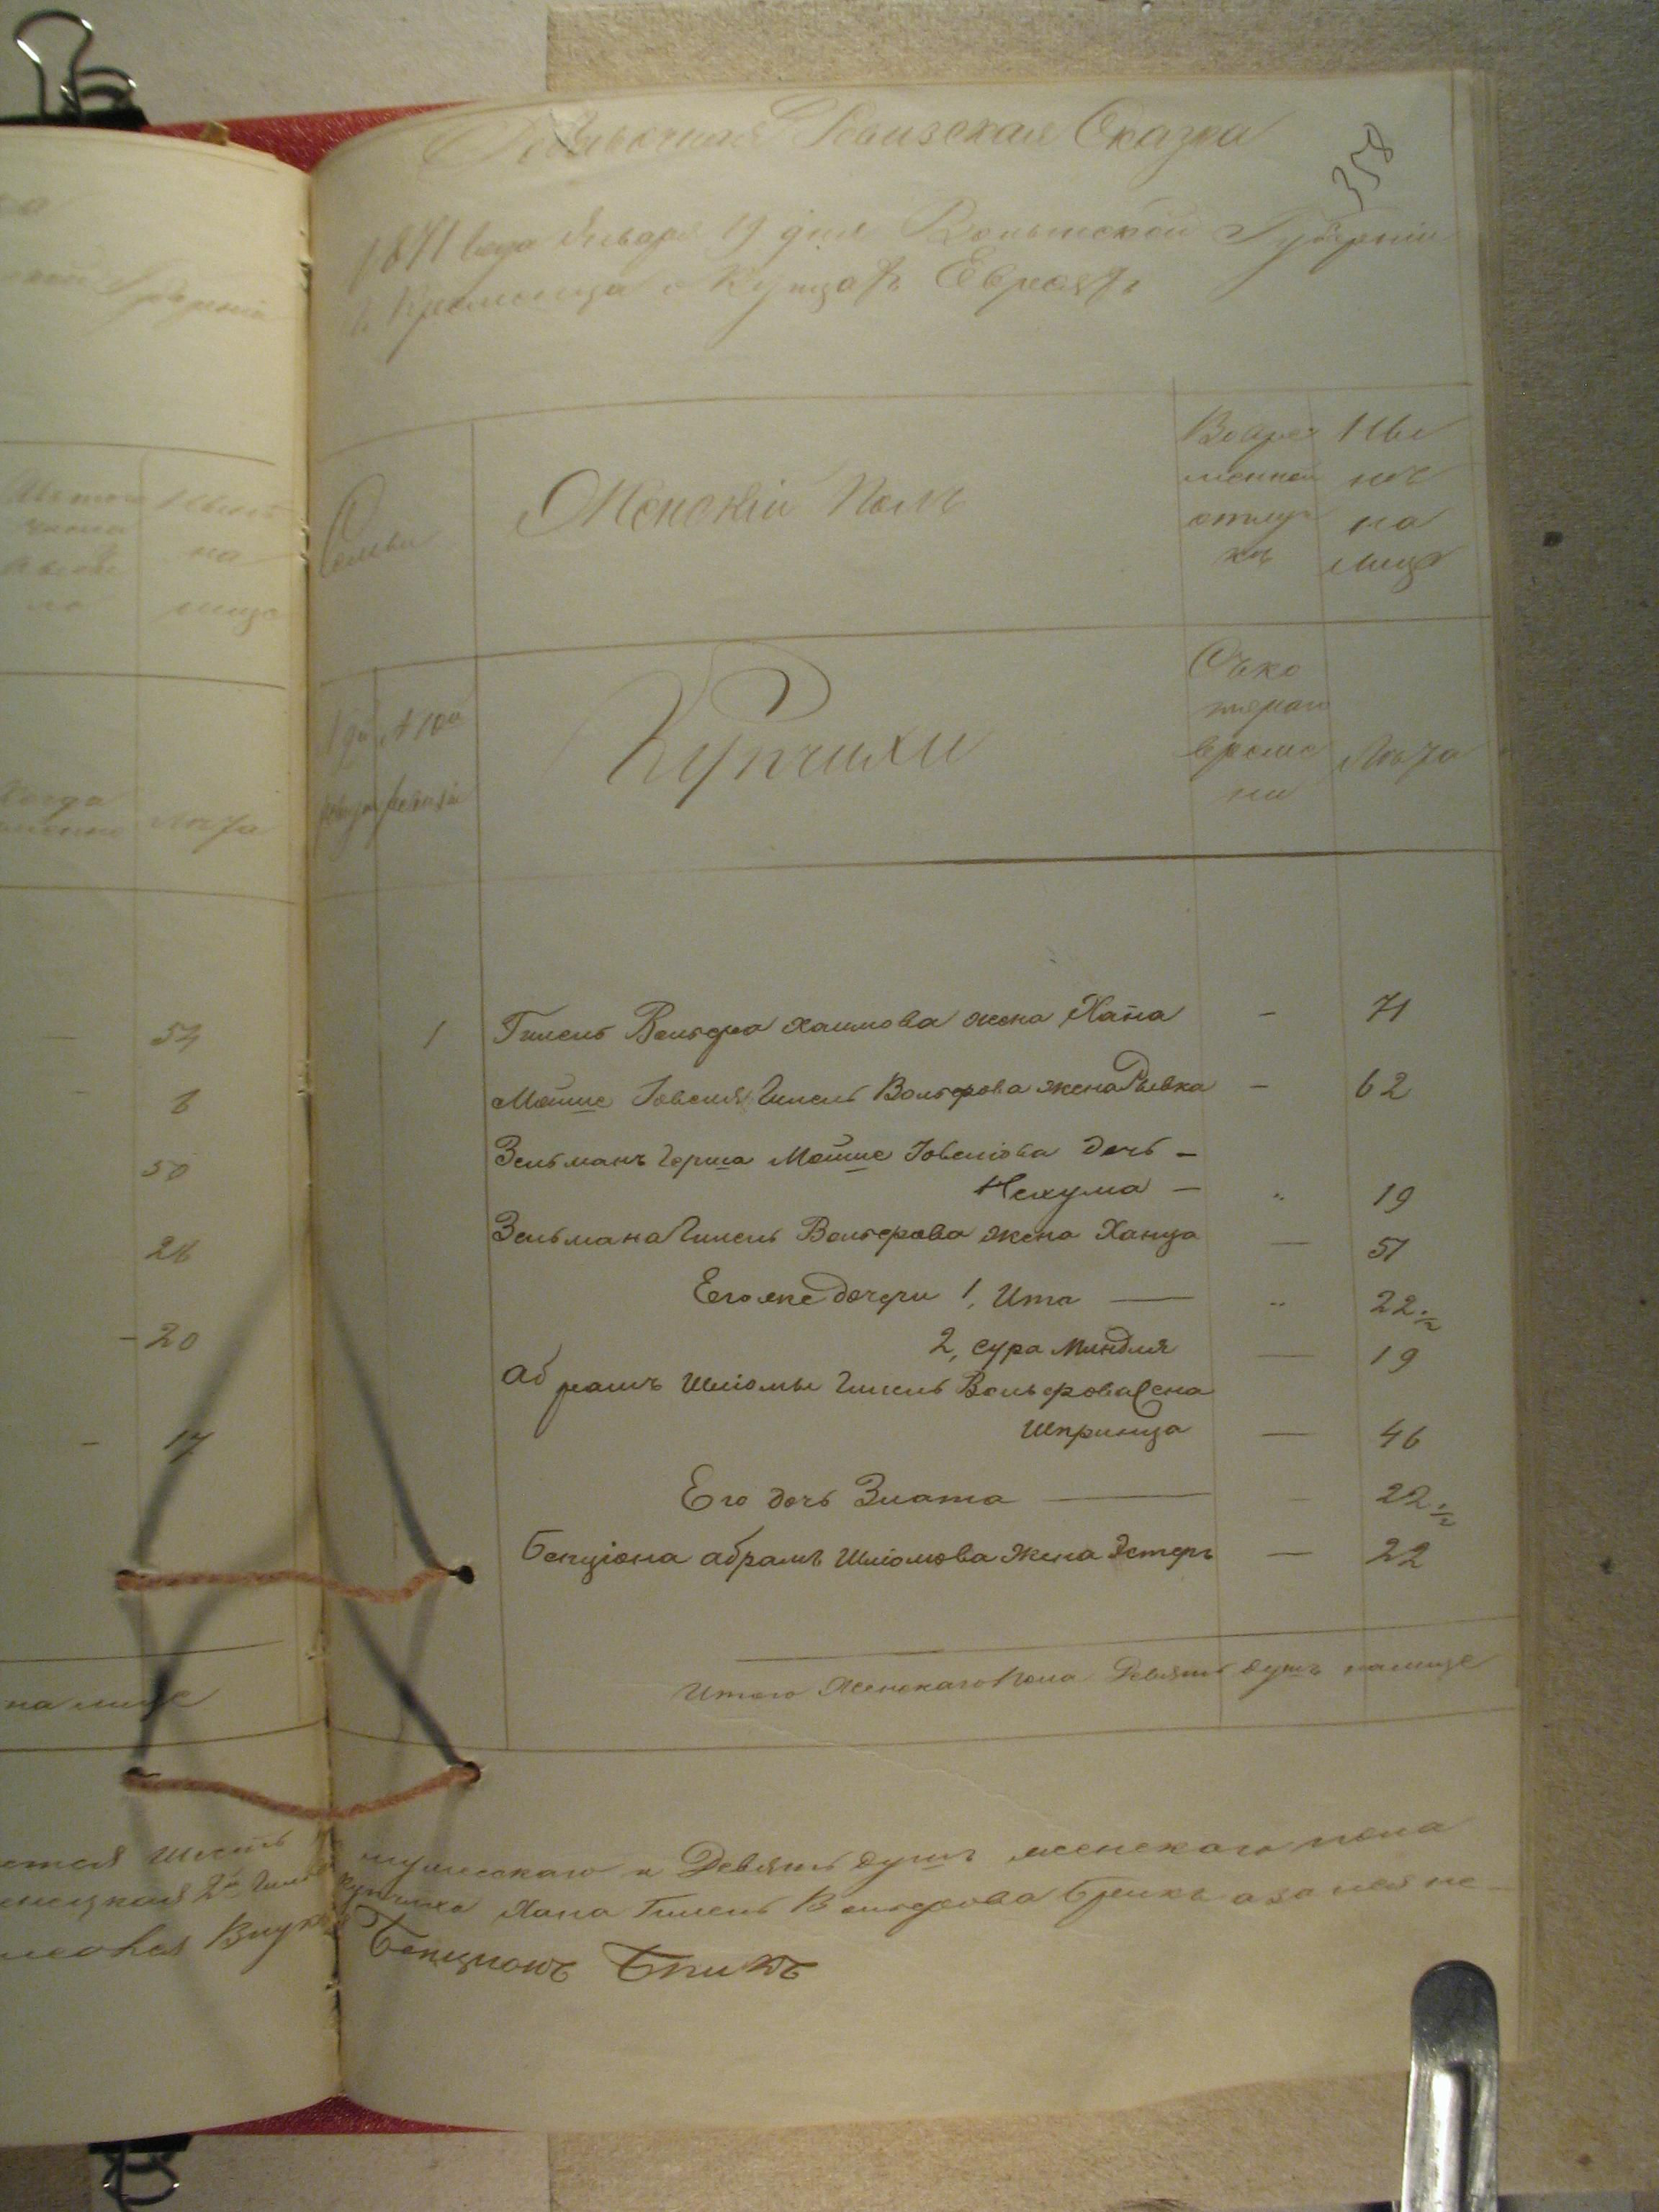 Ревизская Сказка
358
1871 года Января 19 дня Волынской Губернии
г. Кременца о Купцахъ Евреяхъ
Губерніи
Семьи
Женскій Полъ
Во времменной отлучкѣ
Нынѣ на лицо
на
лицо
Купчихи
Съ котораго времени
Лѣта
Лѣта
1
Гилель Вольфа Хаимова жена Хана — 71
Мойше Іовеля Гилель Вольфова жена Рывка — 62
Зельманъ Герша Мойше Іовеліова дочь —
Нехума — " 19
Зельмана Гилель Вольфова жена Ханца — 51
Его же дочери 1, Ита — " 22 ½
2, Сура Миндля — 19
Абрамъ Шліомы Гилель Вольфова жена
Шпринца — 46
Его дочь Злата — 22 ½
Бенціона Абрамъ Шліомова жена Эстеръ — 22
— 54
- 8
50
28
- 20
- 17
Итого Женскаго Пола Девять душъ налице
на лице
мужескаго и Девять душъ женскаго пола
Купчиха Хана Гилель Вольфова Брикъ а за нея не
Внукъ Бенционъ Брикъ